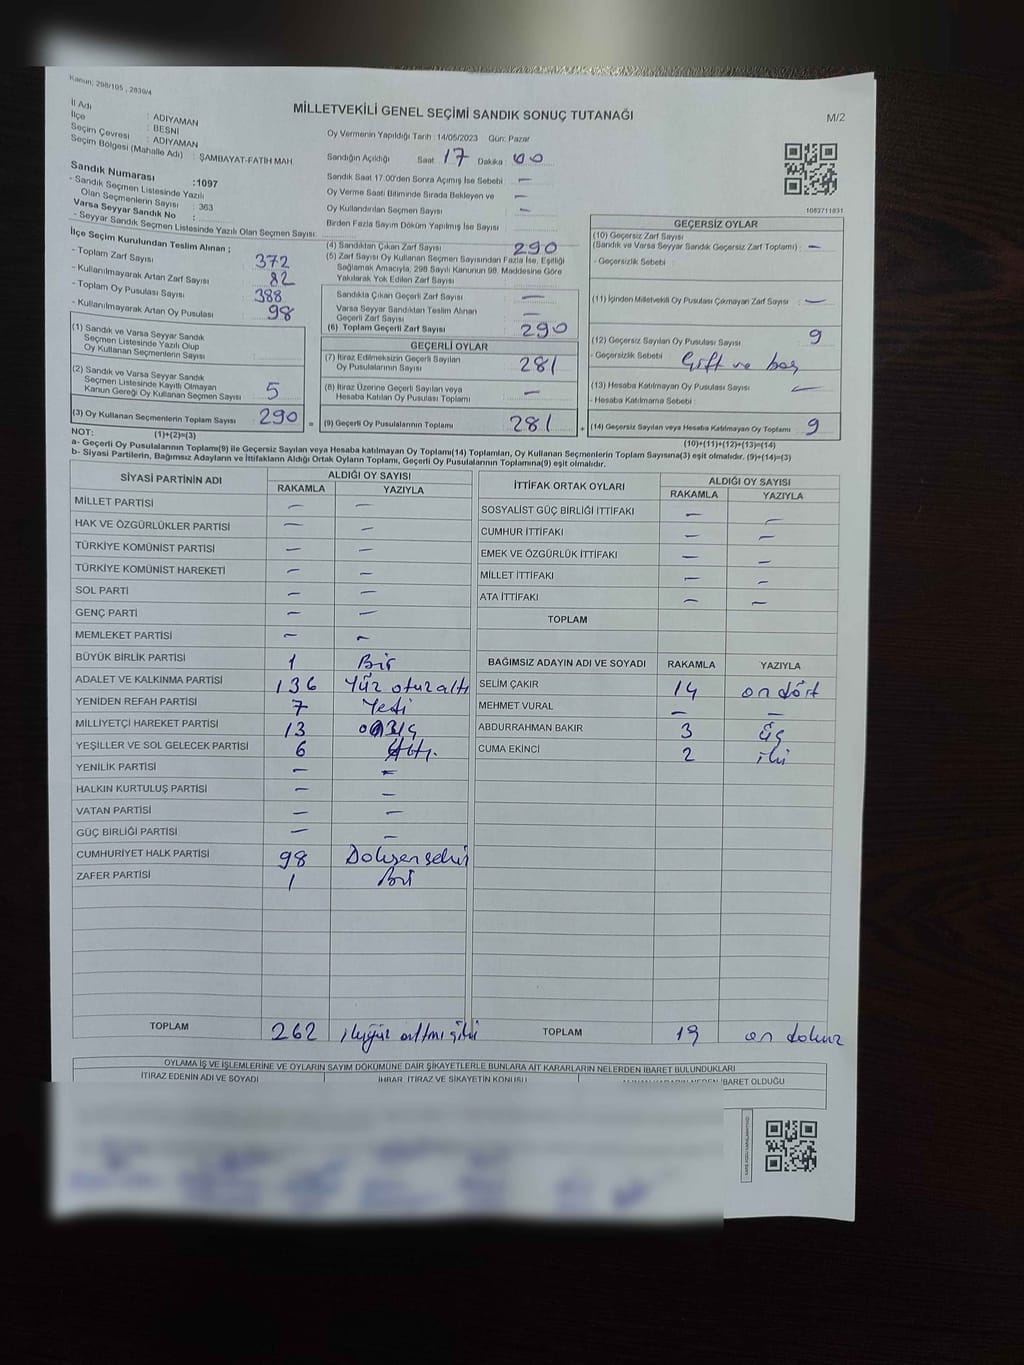 Kanun; 298/105 , 2839/4
MİLLETVEKİLİ GENEL SEÇİMİ SANDIK SONUÇ TUTANAĞI
M/2
İl Adı : ADIYAMAN
İlçe : BESNİ
Seçim Çevresi : ADIYAMAN
Seçim Bölgesi (Mahalle Adı) : ŞAMBAYAT-FATİH MAH.
Sandık Numarası :1097
- Sandık Seçmen Listesinde Yazılı
Olan Seçmenlerin Sayısı : 363
Varsa Seyyar Sandık No :
- Seyyar Sandık Seçmen Listesinde Yazılı Olan Seçmen Sayısı:
Oy Vermenin Yapıldığı Tarih :14/05/2023 Gün: Pazar
Sandığın Açıldığı Saat 17 Dakika : 00
Sandık Saat 17.00'den Sonra Açılmış İse Sebebi : —
Oy Verme Saati Bitiminde Sırada Bekleyen ve —
Oy Kullandırılan Seçmen Sayısı : —
Birden Fazla Sayım Döküm Yapılmış İse Sayısı :
1083711831
İlçe Seçim Kurulundan Teslim Alınan ;
- Toplam Zarf Sayısı 372
- Kullanılmayarak Artan Zarf Sayısı 82
- Toplam Oy Pusulası Sayısı 388
- Kullanılmayarak Artan Oy Pusulası 98
(1) Sandık ve Varsa Seyyar Sandık
Seçmen Listesinde Yazılı Olup
Oy Kullanan Seçmenlerin Sayısı
(2) Sandık ve Varsa Seyyar Sandık
Seçmen Listesinde Kayıtlı Olmayan
Kanun Gereği Oy Kullanan Seçmen Sayısı 5
(3) Oy Kullanan Seçmenlerin Toplam Sayısı 290
(1)+(2)=(3)
(4) Sandıktan Çıkan Zarf Sayısı 290
(5) Zarf Sayısı Oy Kullanan Seçmen Sayısından Fazla İse, Eşitliği
Sağlamak Amacıyla, 298 Sayılı Kanunun 98. Maddesine Göre
Yakılarak Yok Edilen Zarf Sayısı
Sandıkta Çıkan Geçerli Zarf Sayısı —
Varsa Seyyar Sandıktan Teslim Alınan
Geçerli Zarf Sayısı —
(6) Toplam Geçerli Zarf Sayısı 290
GEÇERLİ OYLAR
(7) İtiraz Edilmeksizin Geçerli Sayılan
Oy Pusulalarının Sayısı 281
(8) İtiraz Üzerine Geçerli Sayılan veya
Hesaba Katılan Oy Pusulası Toplamı —
= (9) Geçerli Oy Pusulalarının Toplamı 281
GEÇERSİZ OYLAR
(10) Geçersiz Zarf Sayısı
(Sandık ve Varsa Seyyar Sandık Geçersiz Zarf Toplamı) : —
- Geçersizlik Sebebi :
(11) İçinden Milletvekili Oy Pusulası Çıkmayan Zarf Sayısı : —
(12) Geçersiz Sayılan Oy Pusulası Sayısı 9
- Geçersizlik Sebebi : Çift ve boş
(13) Hesaba Katılmayan Oy Pusulası Sayısı —
- Hesaba Katılmama Sebebi :
+ (14) Geçersiz Sayılan veya Hesaba Katılmayan Oy Toplamı 9
(10)+(11)+(12)+(13)=(14)
NOT:
a- Geçerli Oy Pusulalarının Toplamı(9) ile Geçersiz Sayılan veya Hesaba katılmayan Oy Toplamı(14) Toplamları, Oy Kullanan Seçmenlerin Toplam Sayısına(3) eşit olmalıdır. (9)+(14)=(3)
b- Siyasi Partilerin, Bağımsız Adayların ve İttifakların Aldığı Ortak Oyların Toplamı, Geçerli Oy Pusulalarının Toplamına(9) eşit olmalıdır.
SİYASİ PARTİNİN ADI ALDIĞI OY SAYISI
RAKAMLA YAZIYLA
MİLLET PARTİSİ — —
HAK VE ÖZGÜRLÜKLER PARTİSİ — —
TÜRKİYE KOMÜNİST PARTİSİ — —
TÜRKİYE KOMÜNİST HAREKETİ — —
SOL PARTİ — —
GENÇ PARTİ — —
MEMLEKET PARTİSİ — —
BÜYÜK BİRLİK PARTİSİ 1 Bir
ADALET VE KALKINMA PARTİSİ 136 Yüz otuz altı
YENİDEN REFAH PARTİSİ 7 Yedi
MİLLİYETÇİ HAREKET PARTİSİ 13
YEŞİLLER VE SOL GELECEK PARTİSİ 6 Altı.
YENİLİK PARTİSİ — —
HALKIN KURTULUŞ PARTİSİ — —
VATAN PARTİSİ — —
GÜÇ BİRLİĞİ PARTİSİ — —
CUMHURİYET HALK PARTİSİ 98 Doksen sekiz
ZAFER PARTİSİ 1 Bir
TOPLAM 262 ikiyüz altmış iki
İTTİFAK ORTAK OYLARI ALDIĞI OY SAYISI
RAKAMLA YAZIYLA
SOSYALİST GÜÇ BİRLİĞİ İTTİFAKI — —
CUMHUR İTTİFAKI — —
EMEK VE ÖZGÜRLÜK İTTİFAKI — —
MİLLET İTTİFAKI — —
ATA İTTİFAKI — —
TOPLAM
BAĞIMSIZ ADAYIN ADI VE SOYADI RAKAMLA YAZIYLA
SELİM ÇAKIR 14 on dört
MEHMET VURAL — —
ABDURRAHMAN BAKIR 3 üç
CUMA EKİNCİ 2 iki
TOPLAM 19 on dokuz
OYLAMA İŞ VE İŞLEMLERİNE VE OYLARIN SAYIM DÖKÜMÜNE DAİR ŞİKAYETLERLE BUNLARA AİT KARARLARIN NELERDEN İBARET BULUNDUKLARI
İTİRAZ EDENİN ADI VE SOYADI İHBAR, İTİRAZ VE ŞİKAYETİN KONUSU İBARET OLDUĞU